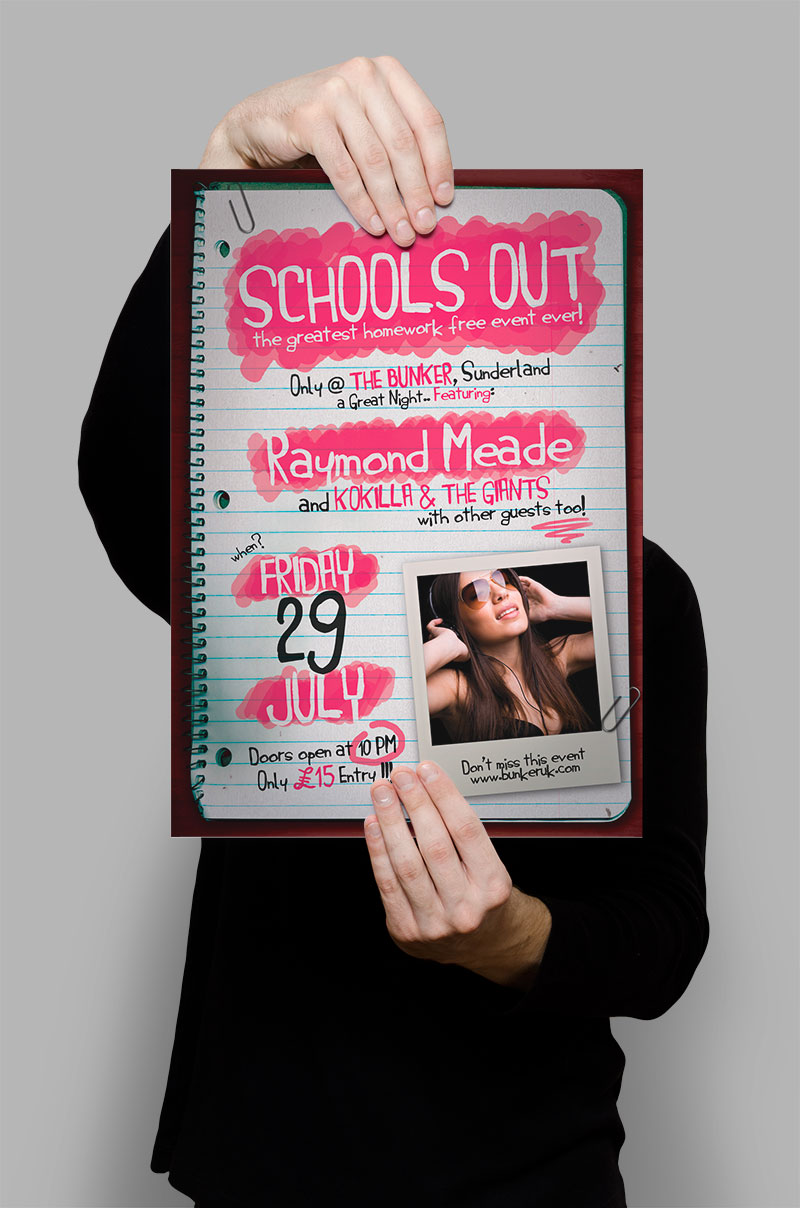 SCHOOLS OUT
the greatest homework free event ever!
Only @ THE BUNKER, Sunderland
a Great Night.. Featuring:
Raymond Meade
and KOKILLA & THE GIANTS
with other guests too!
when?
FRIDAY
29
JULY
Doors open at 10 PM
Only £15 Entry !!!
Don't miss this event
www.bunkeruk.com